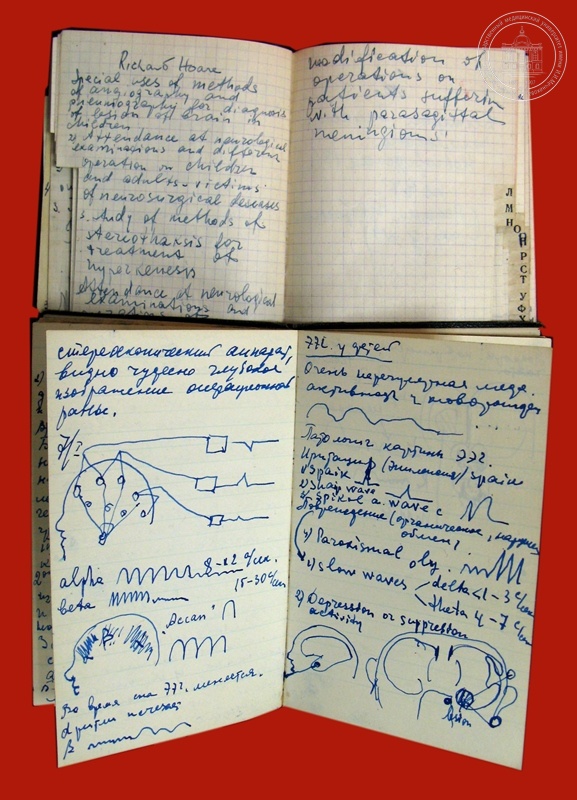 Richard Hoare
Special uses of methods
of angiography and
pneumography for diagnosis
of lesion of brain in
children
2) Attendance at neurological
examinations and different
operation on children
and adults-victims
of neurosurgical deseases
3. study of methods of
stereothaxsis for
treatment of
hyperkenesis
attendance at neurological
examinations and
modification of
operations on
patients sufferin
with parasagittal
meningioms.
Л
М
Н
О
П
Р С Т
У Ф Х
стереоскопический аппарат,
видно чудесно глубокое
изображение операционной
раны.
alpha 8-12 с/сек.
beta 15-30 с/сек
Во время сна ЭЭГ. меняется.
α ритм исчезает
β
ЭЭГ. у детей
Очень нерегулярная медл.
активность у новорожден
Патологич картины ЭЭГ.
Ирритация (Эпилепсия) spaik
1) Spaik
2) Sharp wave
3) Spike a. wave c
Повреждение (органическое, наруш
обмен)
1) Paroxismal
2) slow waves delta <1-3 с/сек
theta 4-7 с/сек
3) Depression or suppression
activity
lesion